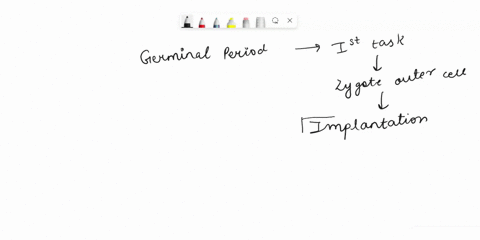 Germinal Period → Ist task
↓
Zygote outer cell
↓
Implantation